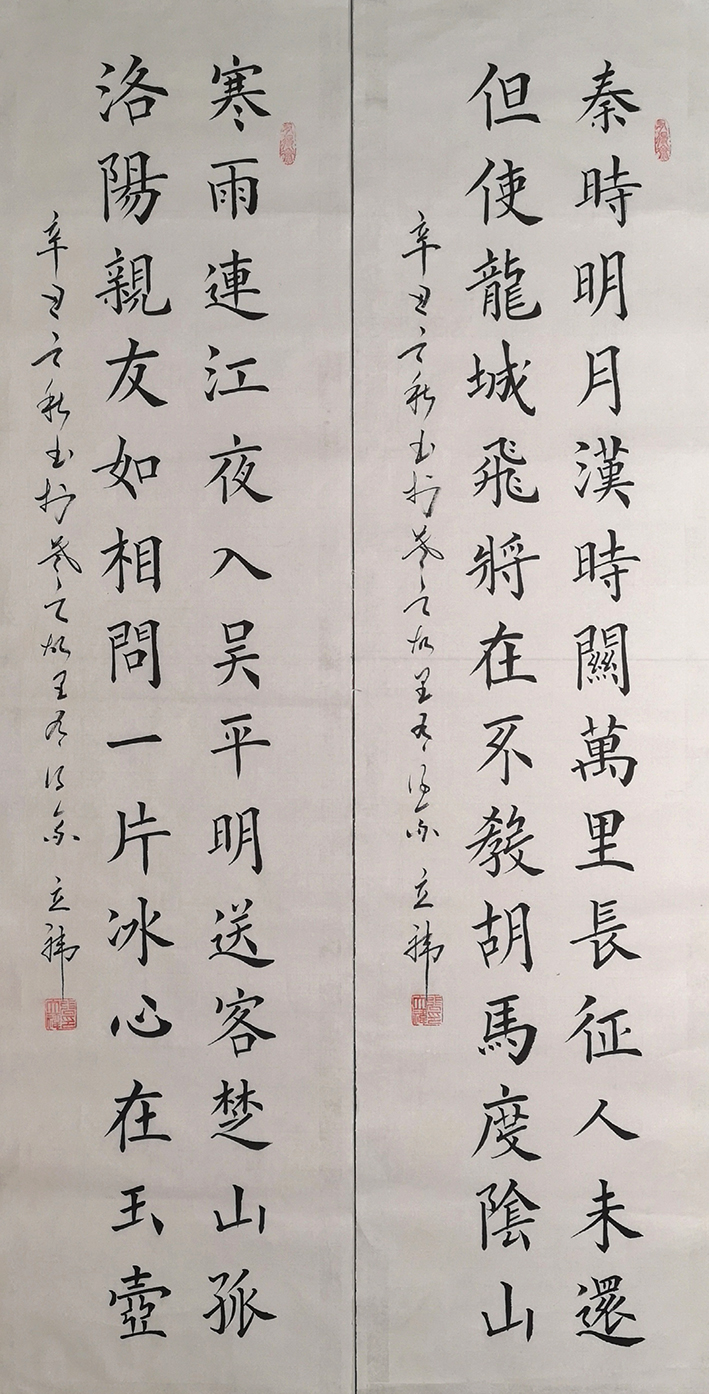 秦時明月漢時關萬里長征人未還
但使龍城飛將在不教胡馬度陰山
辛丑之秋书於羲之故里 立
寒雨連江夜入吴平明送客楚山孤
洛陽親友如相問一片冰心在玉壺
辛丑之秋书於羲之故里 立